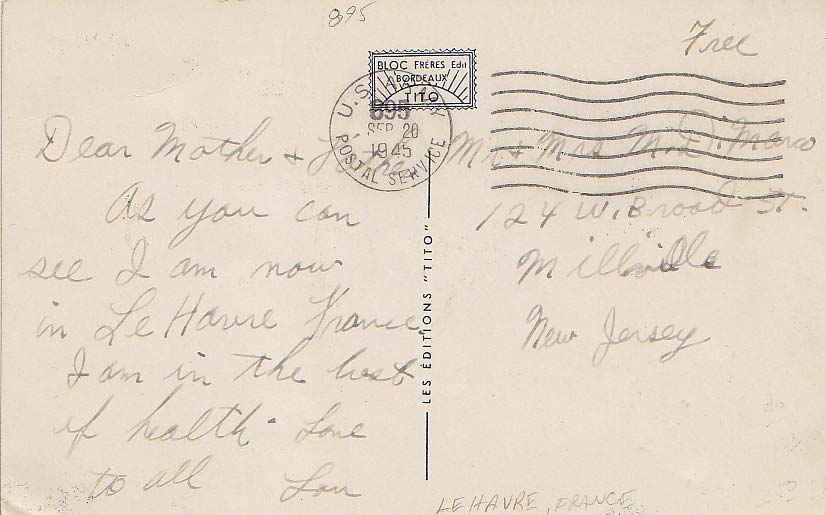 895
Free
BLOC FRÈRES Edit
BORDEAUX
TITO
U.S. ARMY
895
SEP 20
1945
POSTAL SERVICE
Dear Mother &
As you can
see I am now
in Le Havre France.
I am in the best
of health. Love
to all Lou
LES ÉDITIONS "TITO"
Mr & Mrs M. Di Marco
124 W. Broad St.
Millville
New Jersey
LE HAVRE, FRANCE